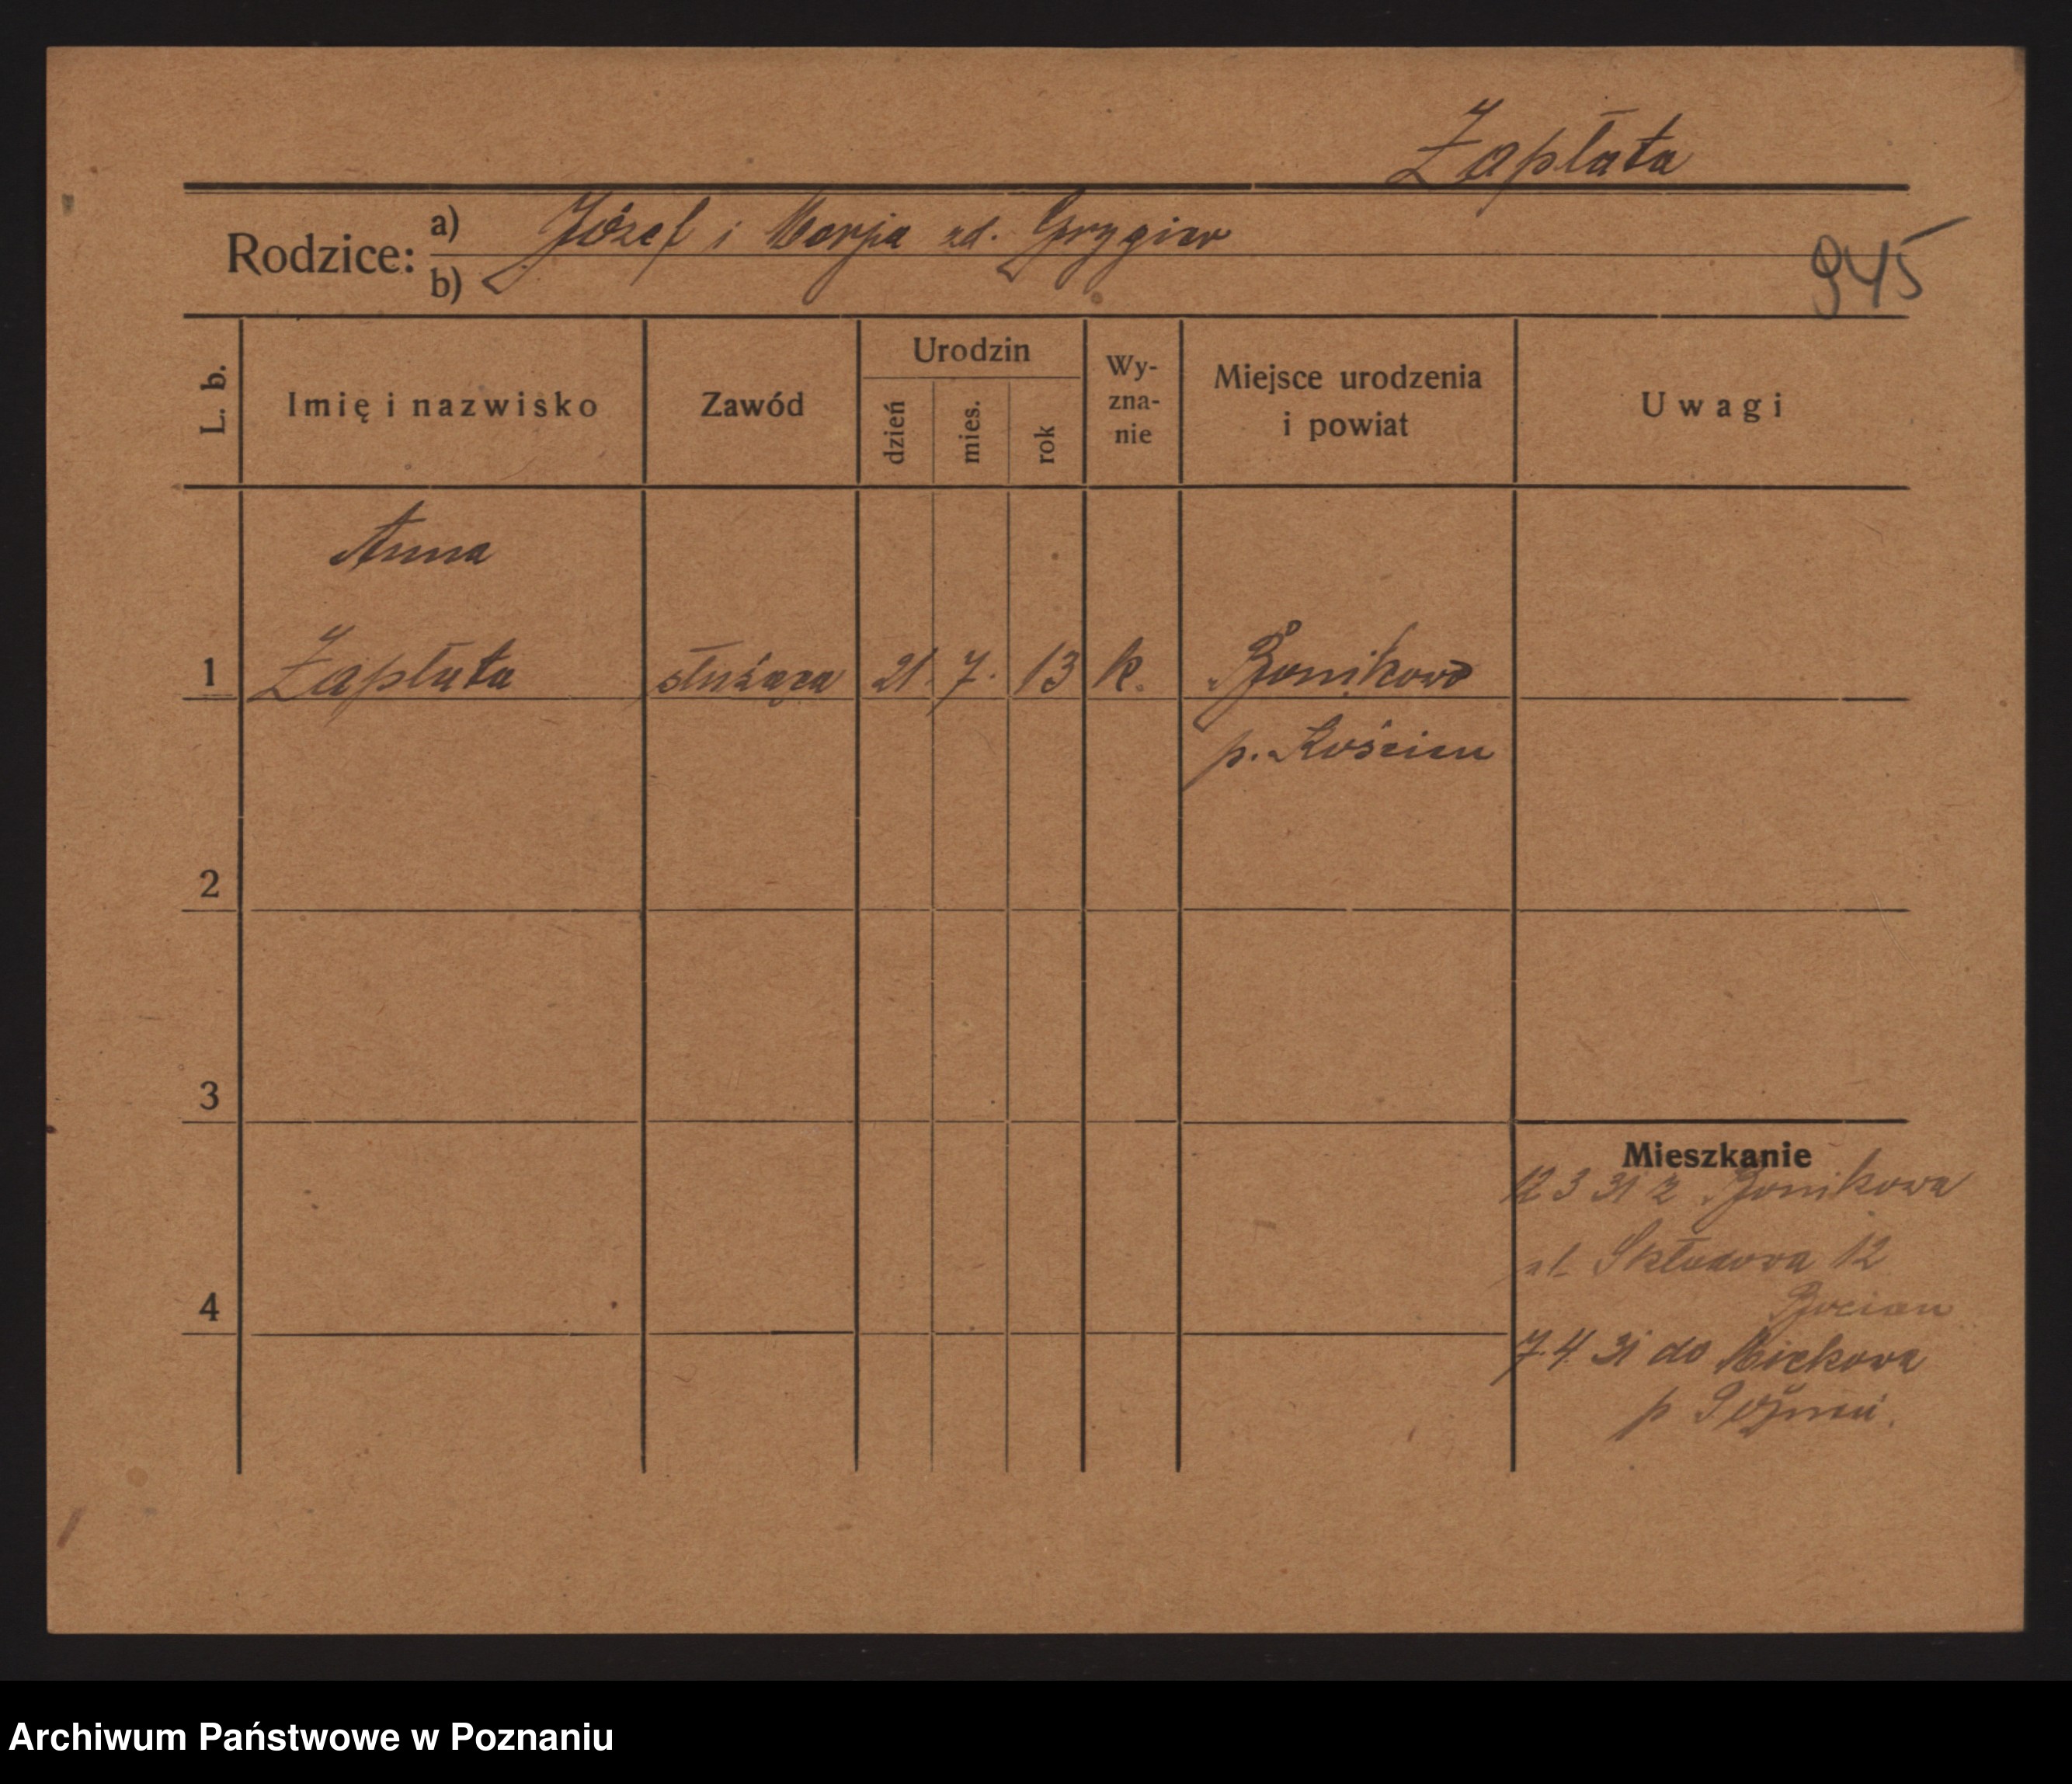 Zapłata
Rodzice: a) Józef i Marja zd. Grygier
b)
945
L. b.
Imię i nazwisko
Zawód
Urodzin
dzień
mies.
rok
Wy-
zna-
nie
Miejsce urodzenia
i powiat
Uwagi
Anna
1 Zapłata służąca 21. 7. 13 k. Bonikowo
p. Kościan
2
3
4
Mieszkanie
12 3 31 z Bonikowa
ul. Składowa 12
Bocian
7.4.31 do
p
Archiwum Państwowe w Poznaniu